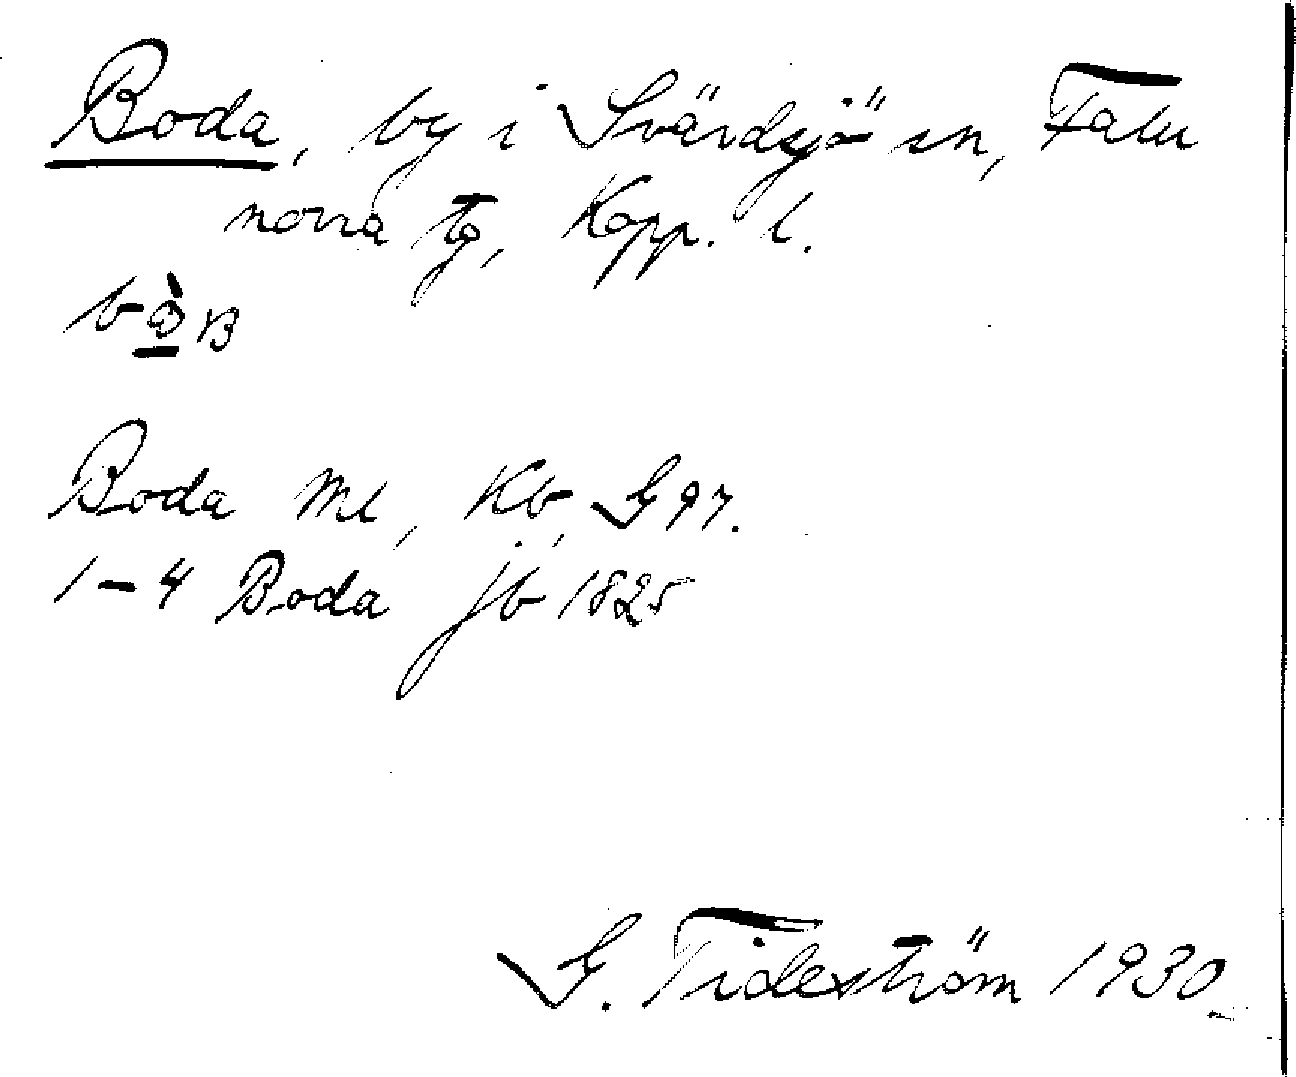 Boda, by i Svärdsjö sn, Falu
norra tg, Kopp. l.
Boda Ml, Kb, G 97.
1–4 Boda jb 1825
G. Tideström 1930